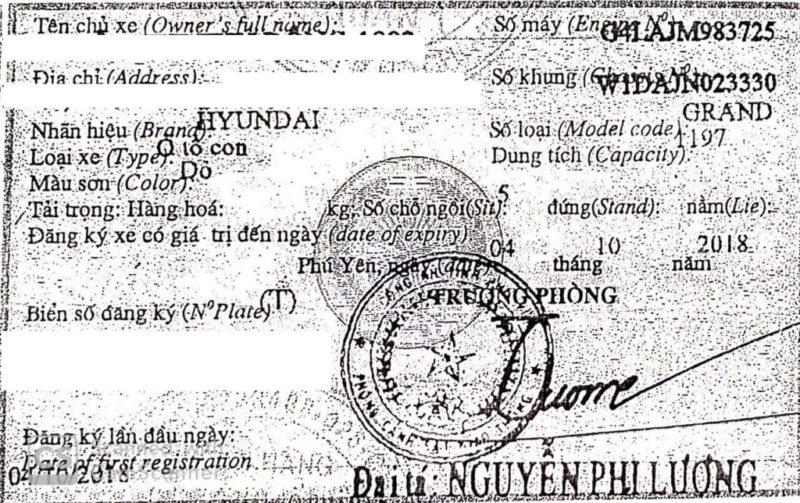 Tên chủ xe (Owner's full name):
Số máy (Engine Nº): G4LAJM983725
Địa chỉ (Address):
Số khung (Chassis Nº): W1DAJN023330
Nhãn hiệu (Brand): HYUNDAI
Số loại (Model code): GRAND
Loại xe (Type): Ô tô con
Dung tích (Capacity): 1197
Màu sơn (Color): Đỏ
Tải trọng: Hàng hoá: kg; Số chỗ ngồi(Sit): 5 đứng(Stand): nằm(Lie):
Đăng ký xe có giá trị đến ngày (date of expiry)
Phú Yên, ngày (date) 04 tháng 10 năm 2018
TRƯỞNG PHÒNG
Biển số đăng ký (NºPlate) (T)
Đăng ký lần đầu ngày:
Date of first registration
04 2018
Đại tá: NGUYỄN PHI LƯƠNG